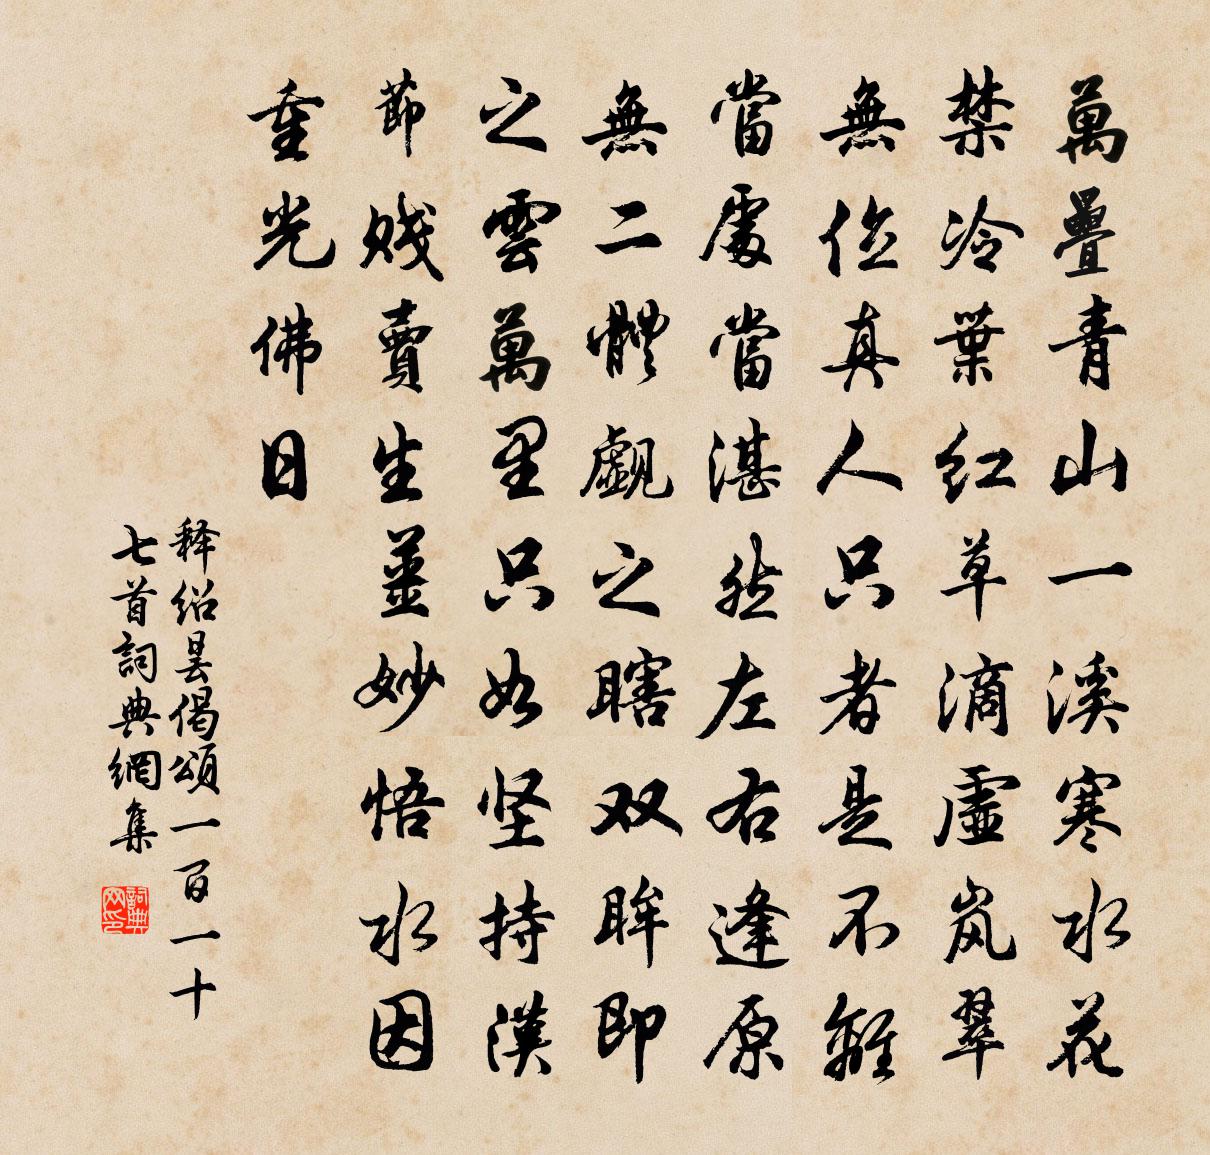 萬疊青山一溪寒水花
禁冷葉红草滴虛岚翠
無位真人只者是不離
當處當湛然左右逢原
無二體觑之瞎双眸即
之雲萬里只如坚持漢
節贱賣生薑妙悟水因
重光佛日
释绍昙偈頌一百一十
七首詞典網集
詞典网印